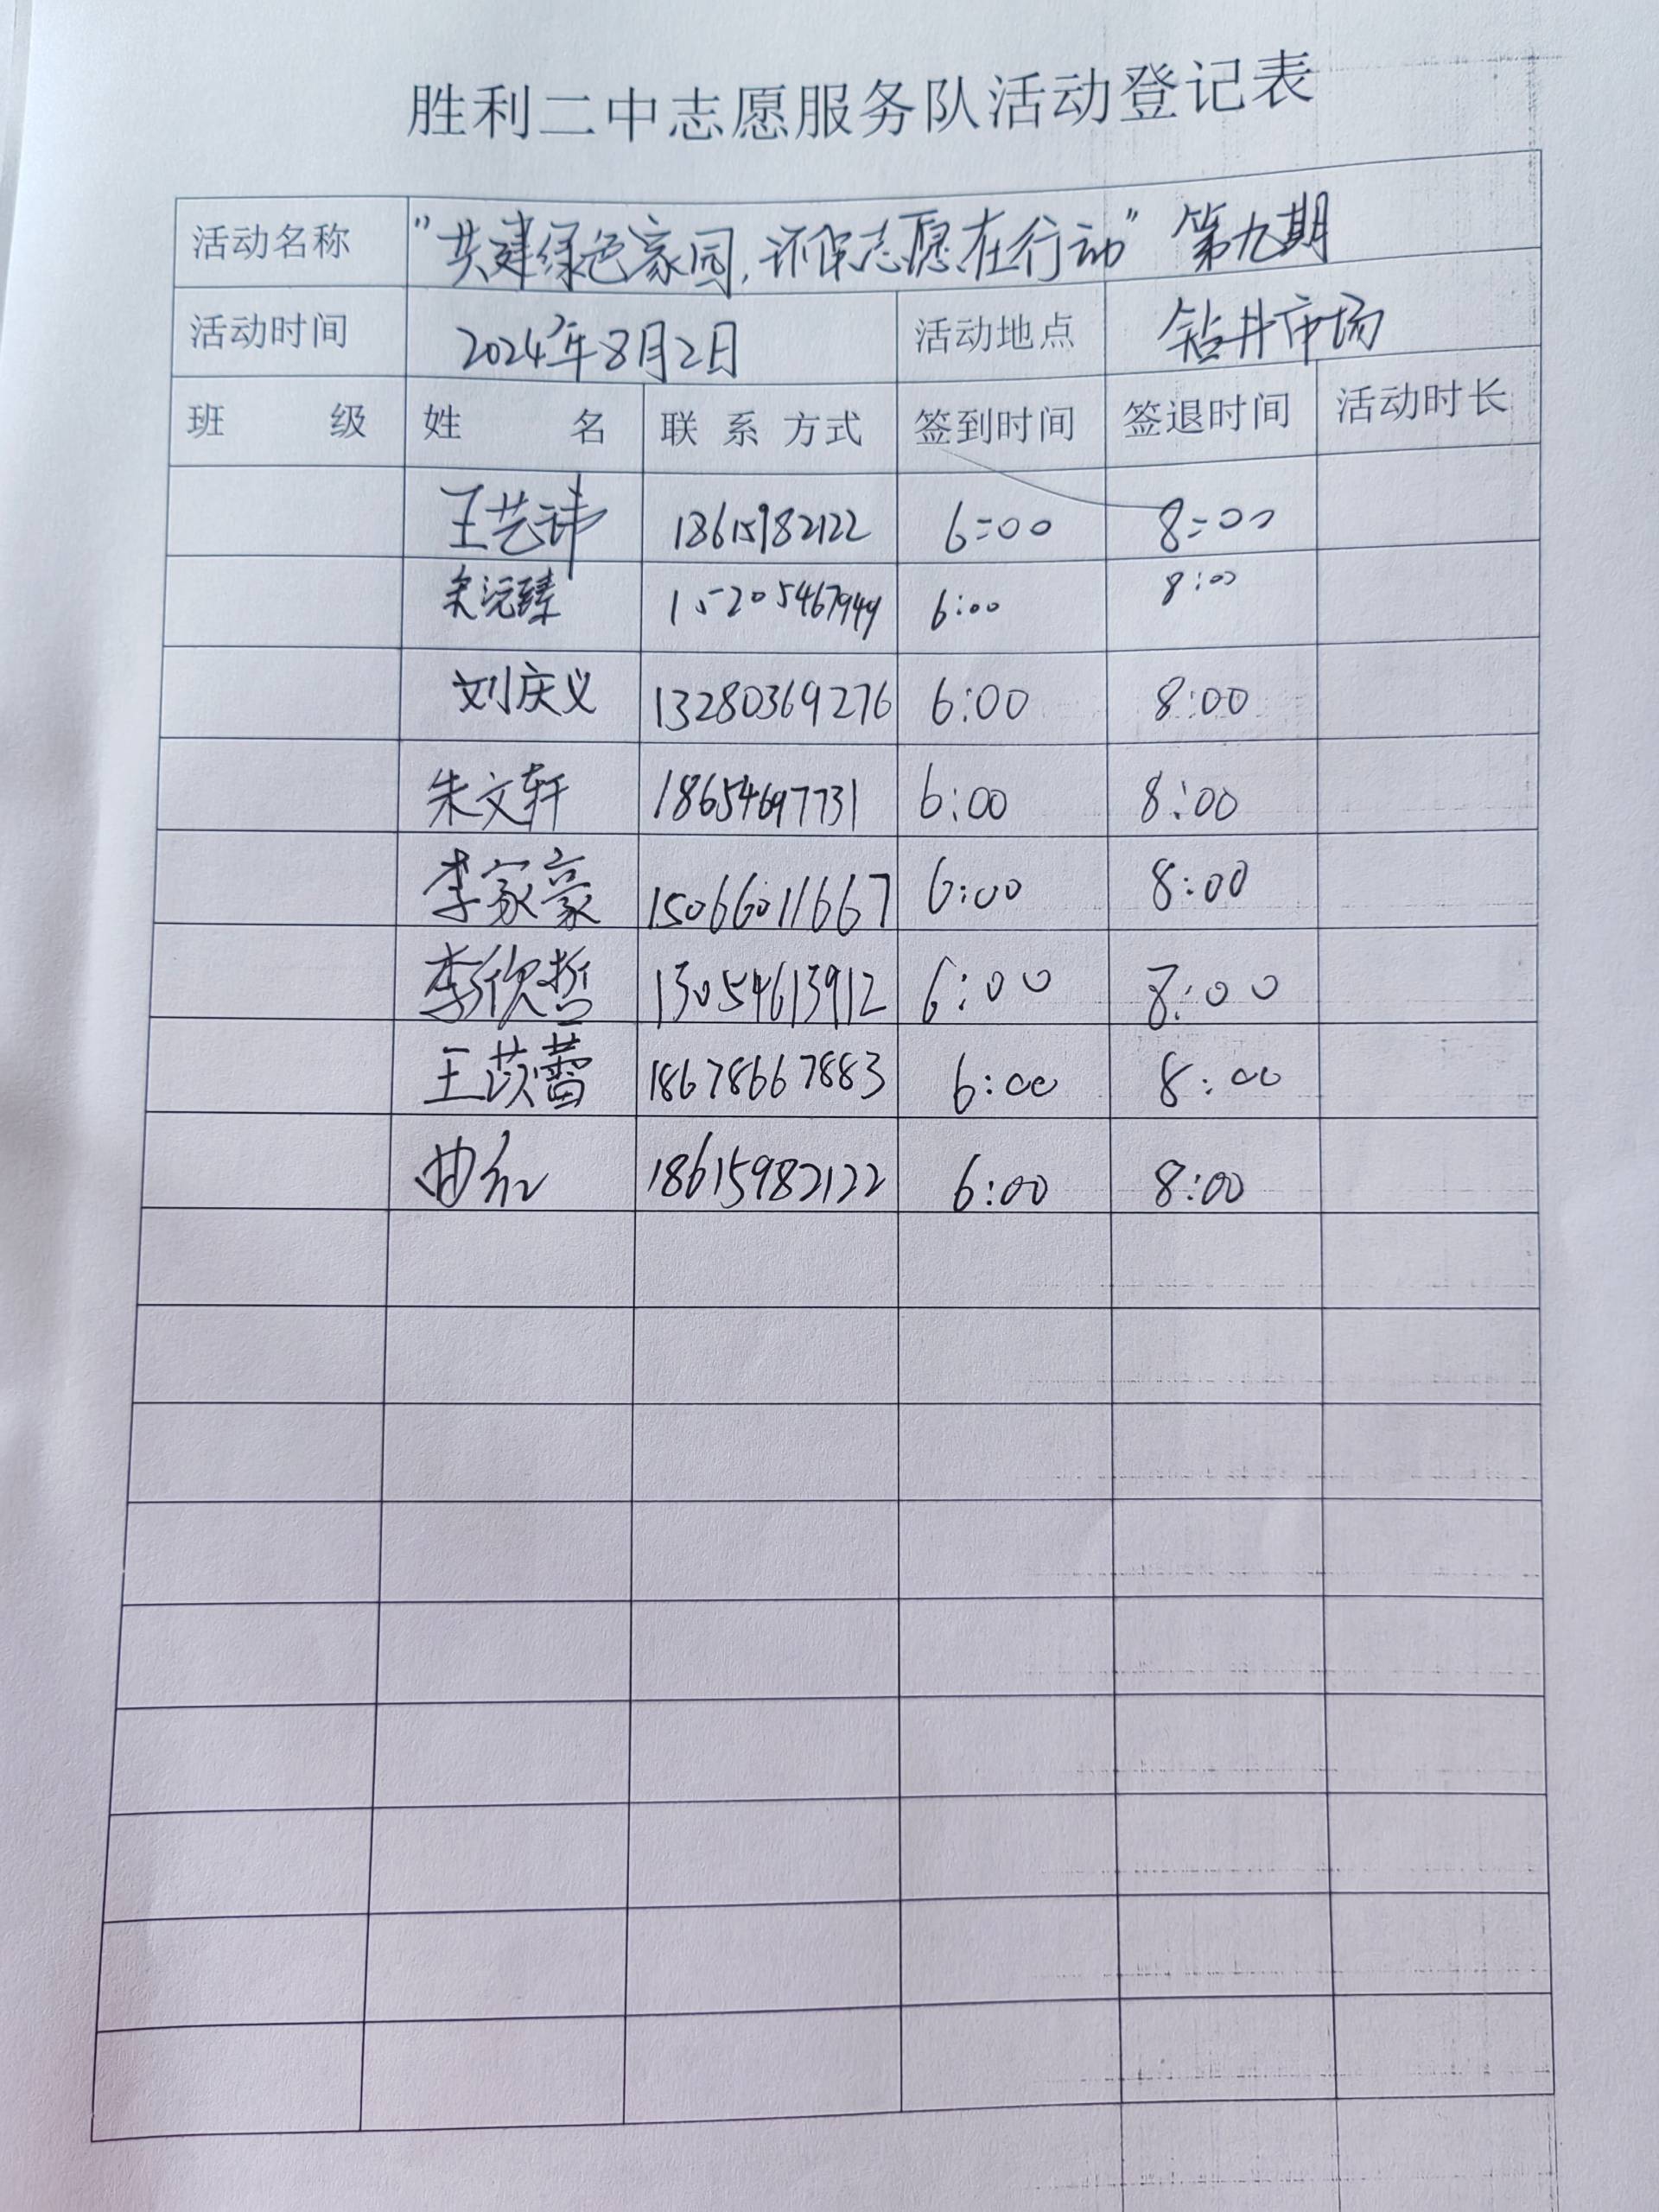 胜利二中志愿服务队活动登记表
活动名称 "共建绿色家园,环保志愿在行动" 第九期
活动时间 2024年8月2日 活动地点 钻井市场
班 级 姓 名 联系方式 签到时间 签退时间 活动时长
王艺玮 18615982122 6:00 8:00
15205467949 6:00 8:00
刘庆义 13280369276 6:00 8:00
朱文轩 18654697731 6:00 8:00
李家豪 15066011667 6:00 8:00
李欣哲 13054613912 6:00 8:00
王苡蕾 18678667883 6:00 8:00
曲红 18615982122 6:00 8:00